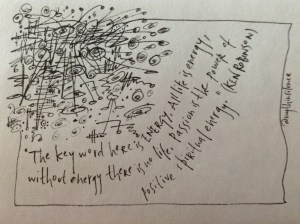 "The key word here is ENERGY. All life is energy,
without energy there is no life. Passion is the Power of
positive spiritual energy." (KEN ROBINSON)